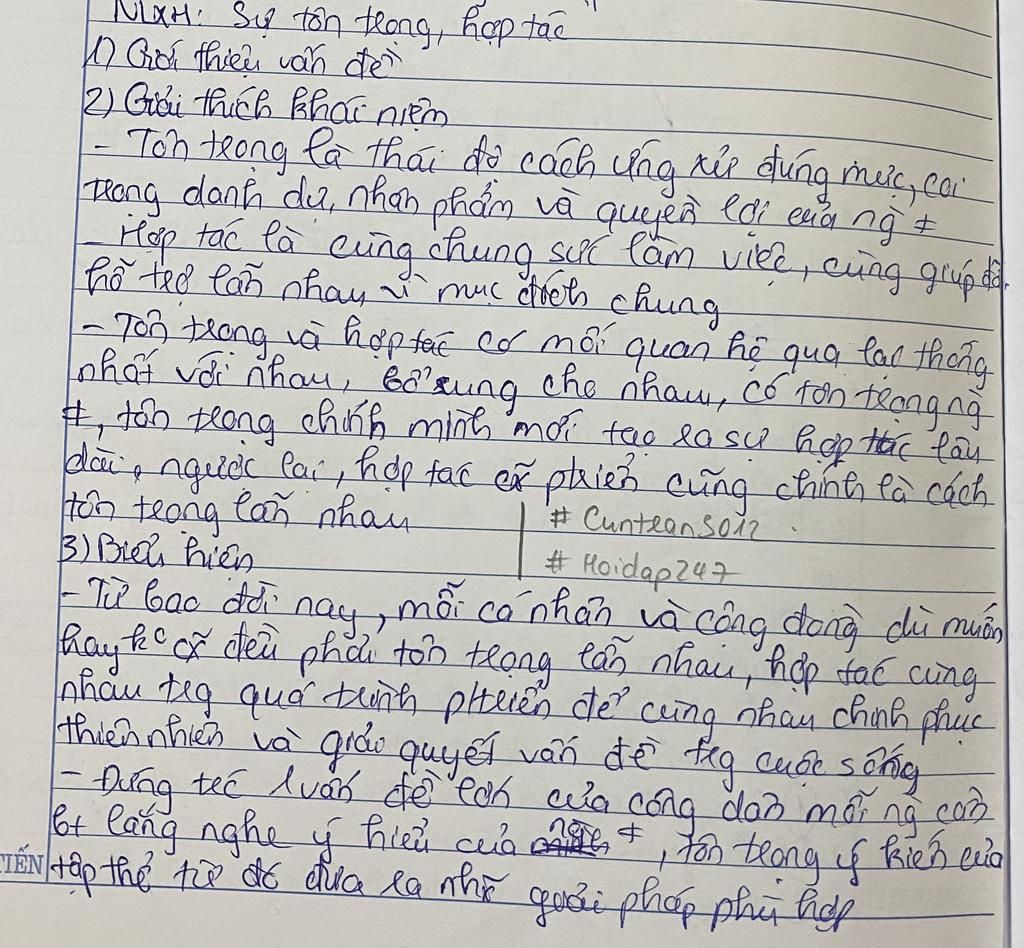 NLXH: Sự tôn trọng, hợp tác
1) Giới thiệu vấn đề
2) Giải thích khái niệm
- Tôn trọng là thái độ cách ứng xử đúng mực, coi
trọng danh dự, nhân phẩm và quyền lợi của ng ≠
- Hợp tác là cùng chung sức làm việc, cùng giúp đỡ,
hỗ trợ lẫn nhau vì mục đích chung
- Tôn trọng và hợp tác có mối quan hệ qua lại thống
nhất với nhau, bổ sung cho nhau, có tôn trọng ng
≠, tôn trọng chính mình mới tạo ra sự hợp tác lâu
dài, ngược lại, hợp tác ptriển cũng chính là cách
tôn trọng lẫn nhau
# Cuntrean3012
# Hoidap247
3) Biểu hiện
- Từ bao đời nay, mỗi cá nhân và cộng đồng dù muốn
hay ko đều phải tôn trọng lẫn nhau, hợp tác cùng
nhau trg quá trình ptriển để cùng nhau chinh phục
thiên nhiên và giải quyết vấn đề trg cuộc sống
- Đứng trc 1 vấn đề lớn của cộng đồng mỗi ng cần
bt lắng nghe ý hiểu của ng ≠, tôn trọng ý kiến của
TIẾN
tập thể từ đó đưa ra nhg giải pháp phù hợp